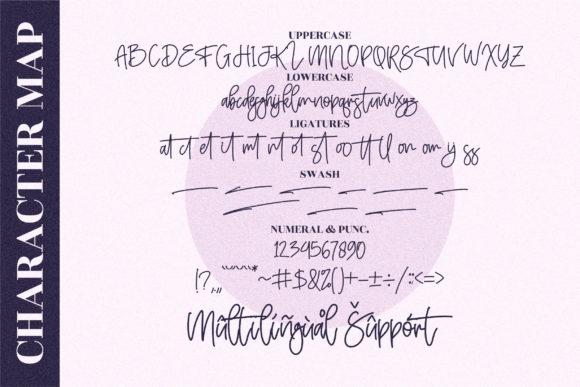 CHARACTER MAP
UPPERCASE
ABCDEFGHIJKLMNOPQRSTUVWXYZ
LOWERCASE
abcdefghijklmnopqrstuvwxyz
LIGATURES
at ct et it mt nt ot st oo tt ll on om ij ss
SWASH
NUMERAL & PUNC.
1234567890
!?,,,"""*~#$&%()+-±÷/:;<=>
Mûltilíñgùål Šûppórt